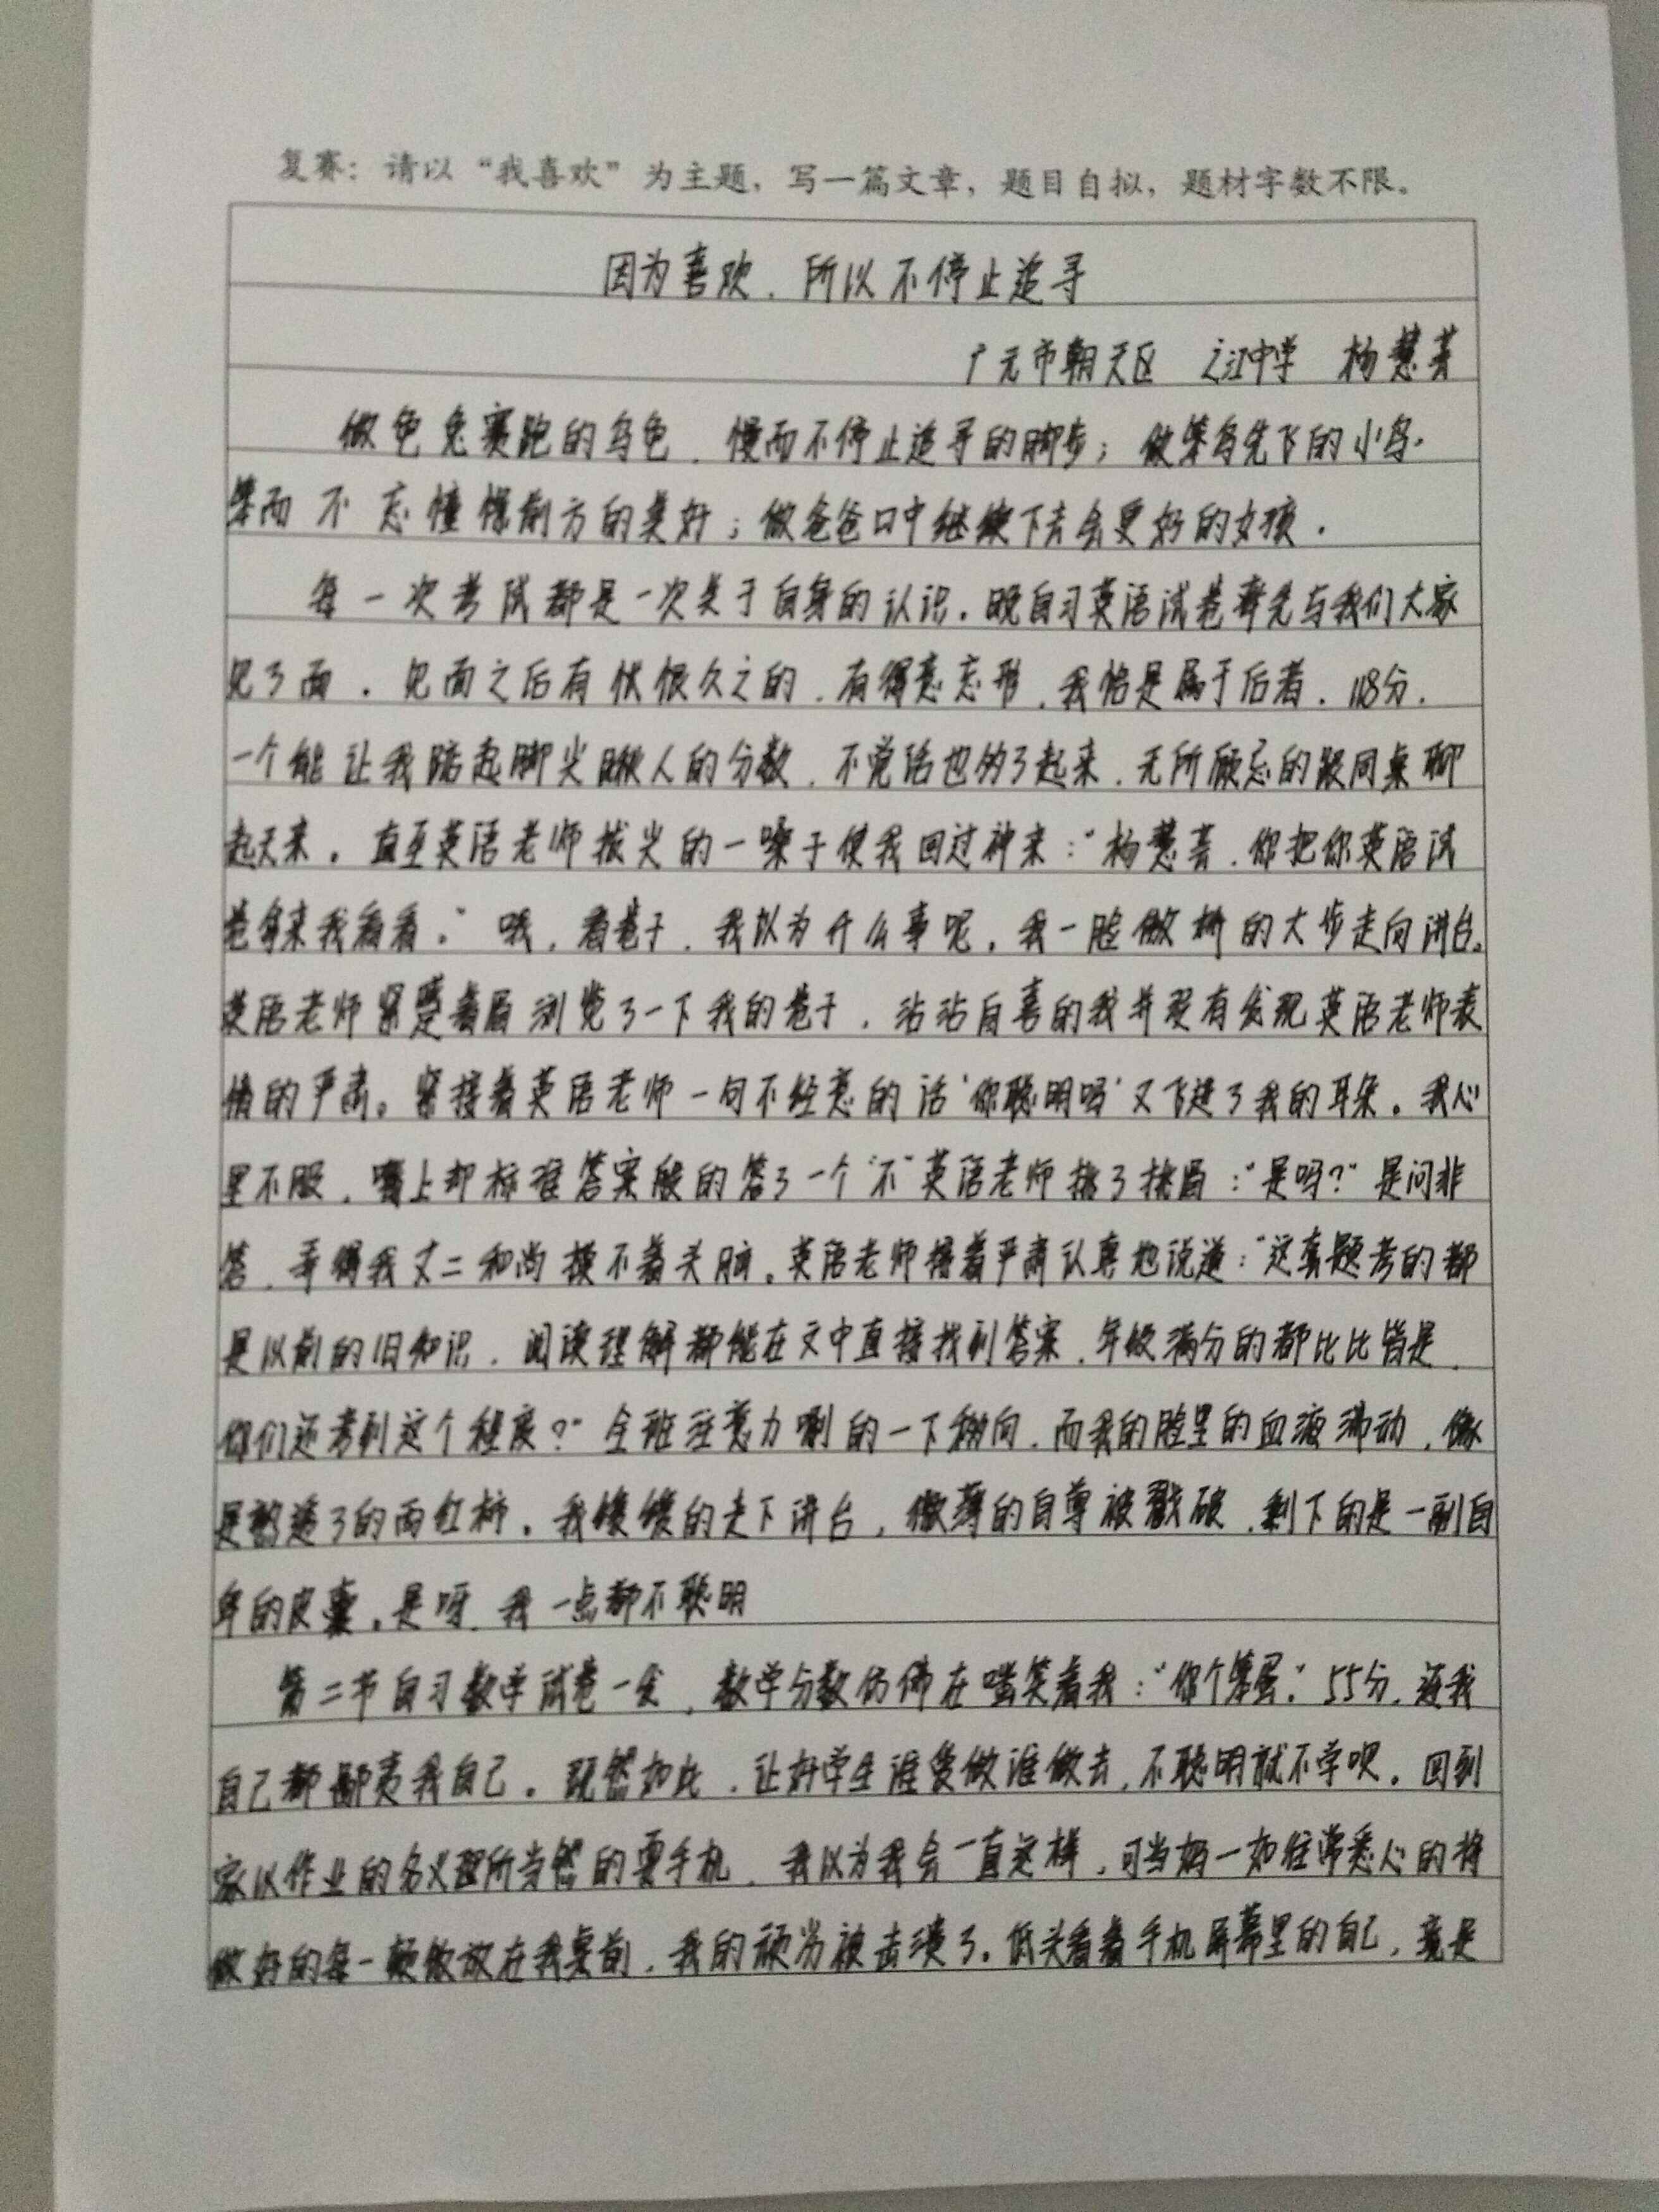 复赛：请以“我喜欢”为主题，写一篇文章，题目自拟，题材字数不限。
因为喜欢，所以不停止追寻
广元市朝天区 之江中学 杨慧芸
做龟兔赛跑的乌龟，慢而不停止追寻的脚步；做笨鸟先飞的小鸟，
笨而不忘憧憬前方的美好；做爸爸口中继续下去会更好的女孩。
每一次考试都是一次关于自身的认识。晚自习英语试卷率先与我们大家
见了面。见面之后有恍惚久之的，有得意忘形，我恰是属于后者。118分，
一个能让我踮起脚尖瞅人的分数，不觉话也的了起来，无所顾忌的跟同桌聊
起天来。直至英语老师拔尖的一嗓子使我回过神来：“杨慧芸，你把你英语试
卷拿来我看看。”哦，看卷子，我以为什么事呢。我一脸傲娇的大步走向讲台。
英语老师紧蹙着眉浏览了一下我的卷子，沾沾自喜的我并没有发现英语老师表
情的严肃。紧接着英语老师一句不经意的话‘你聪明吗’又飞进了我的耳朵。我心
里不服，嘴上却标准答案般的答了一个“不”英语老师挑了挑眉：“是吗？”是问非
答，弄得我丈二和尚摸不着头脑。英语老师接着严肃认真地说道：“这套题考的都
是以前的旧知识，阅读理解都能在文中直接找到答案，年级满分的都比比皆是，
你们还考到这个程度？”全班注意力唰的一下翻向，而我的脸里的血液沸动，像
是熟透了的两红柿。我缓缓的走下讲台，微薄的自尊被戳破，剩下的是一副自
卑的皮囊。是呀，我一点都不聪明
第二节自习数学试卷一发，数学分数仿佛在嗤笑着我：“你个笨蛋。”55分，连我
自己都鄙夷我自己。既然如此，让好学生谁爱做谁做去，不聪明就不学呗。回到
家以作业的名义理所当然的耍手机，我以为我会一直这样，可当妈一如往常悉心的将
做好的每一顿饭放在我桌前，我的颓当被击溃了。低头看着手机屏幕里的自己，竟是